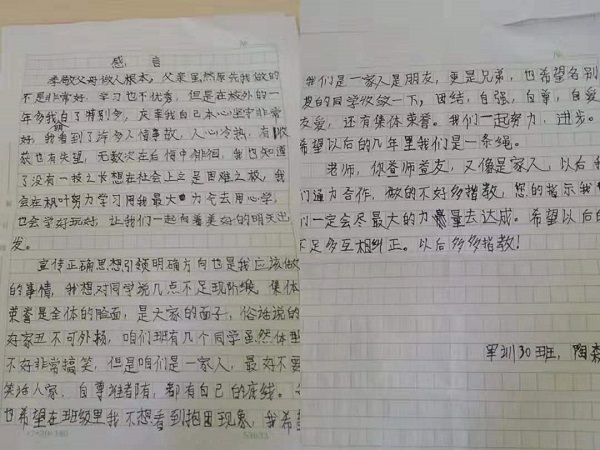 感 自
孝敬父母做人根本，父亲虽然原先我做的
不是非常好，学习也不优秀，但是在校外的一
年多我自了特别多，庆幸我自己本心坚守非常
好，我看到了许多人情事故，人心冷热，有收
获也有失望，无数次在后悔中徘徊，我也知道
了没有一技之长想在社会上立足困难之极，我
会在枫叶努力学习用我最大力气去用心学，
也会学好玩好，让我们一起向着美好的明天出
发。
宣传正确思想引领明确方向也是我应该做
的事情，我想对同学说几点不足现阶段，集体
荣誉是全体的脸面，是大家的面子，俗话说的
好家丑不可外扬，咱们班有几个同学虽然体型
不好非常搞笑，但是咱们是一家人，最好不要
笑话人家，自尊谁都有，都有自己的底线。
也希望在班级里我不想看到抱团现象，我希
我们是一家人是朋友，更是兄弟，也希望各别
的同学收敛一下，团结，自强，自尊，自爱
友爱，还有集体荣誉。我们一起努力，进步。
希望以后的几年里我们是一条绳。
老师，你算师益友，又像是家人，以后我
们通力合作，做的不好多指教，您的指示我
们一定会尽最大的力量去达成。希望以后的
不足多互相纠正。以后多多指教！
军训30班，陶森